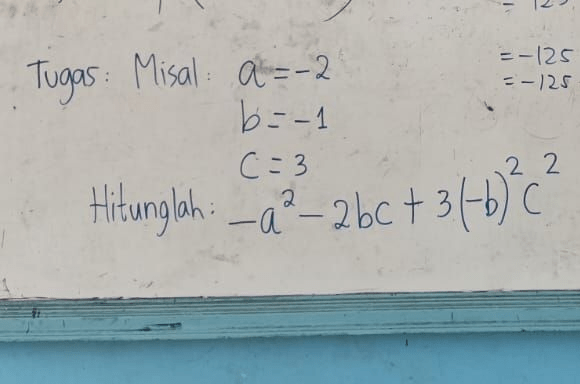 = 125
= -125
= -125
Tugas: Misal: a = -2
b = -1
c = 3
Hitunglah: -a² - 2bc + 3(-b)²c²